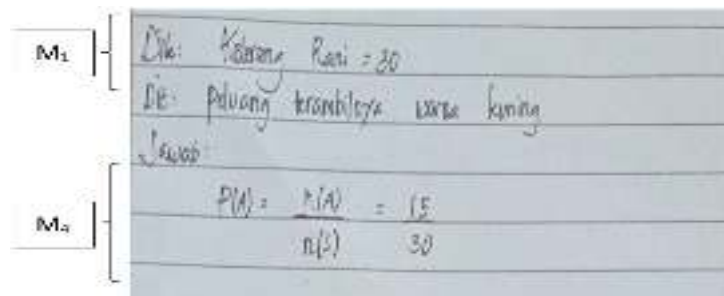 M₁
Dik: Kelereng Rani = 30
Dit: Peluang terambilnya warna kuning
Jawab:
P(A) = n(A) / n(S) = 15 / 30